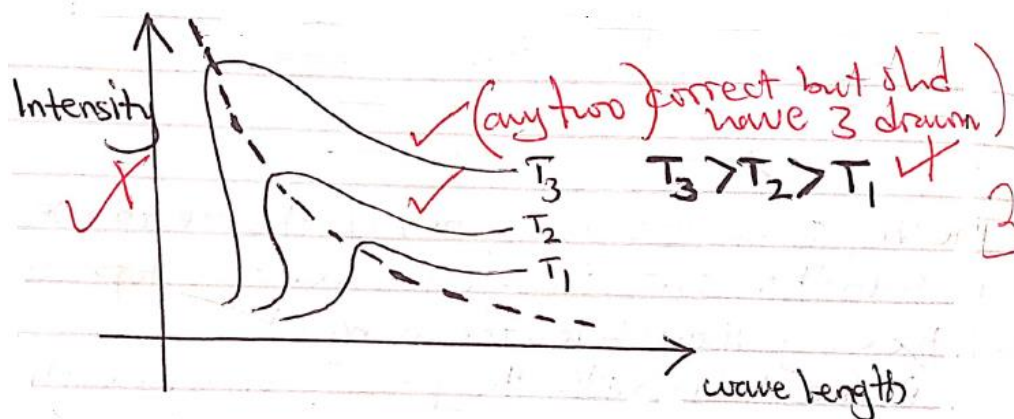 Intensity
(any two) correct but shd
have 3 drawn)
T₃ > T₂ > T₁
T₃
T₂
T₁
3
wave length